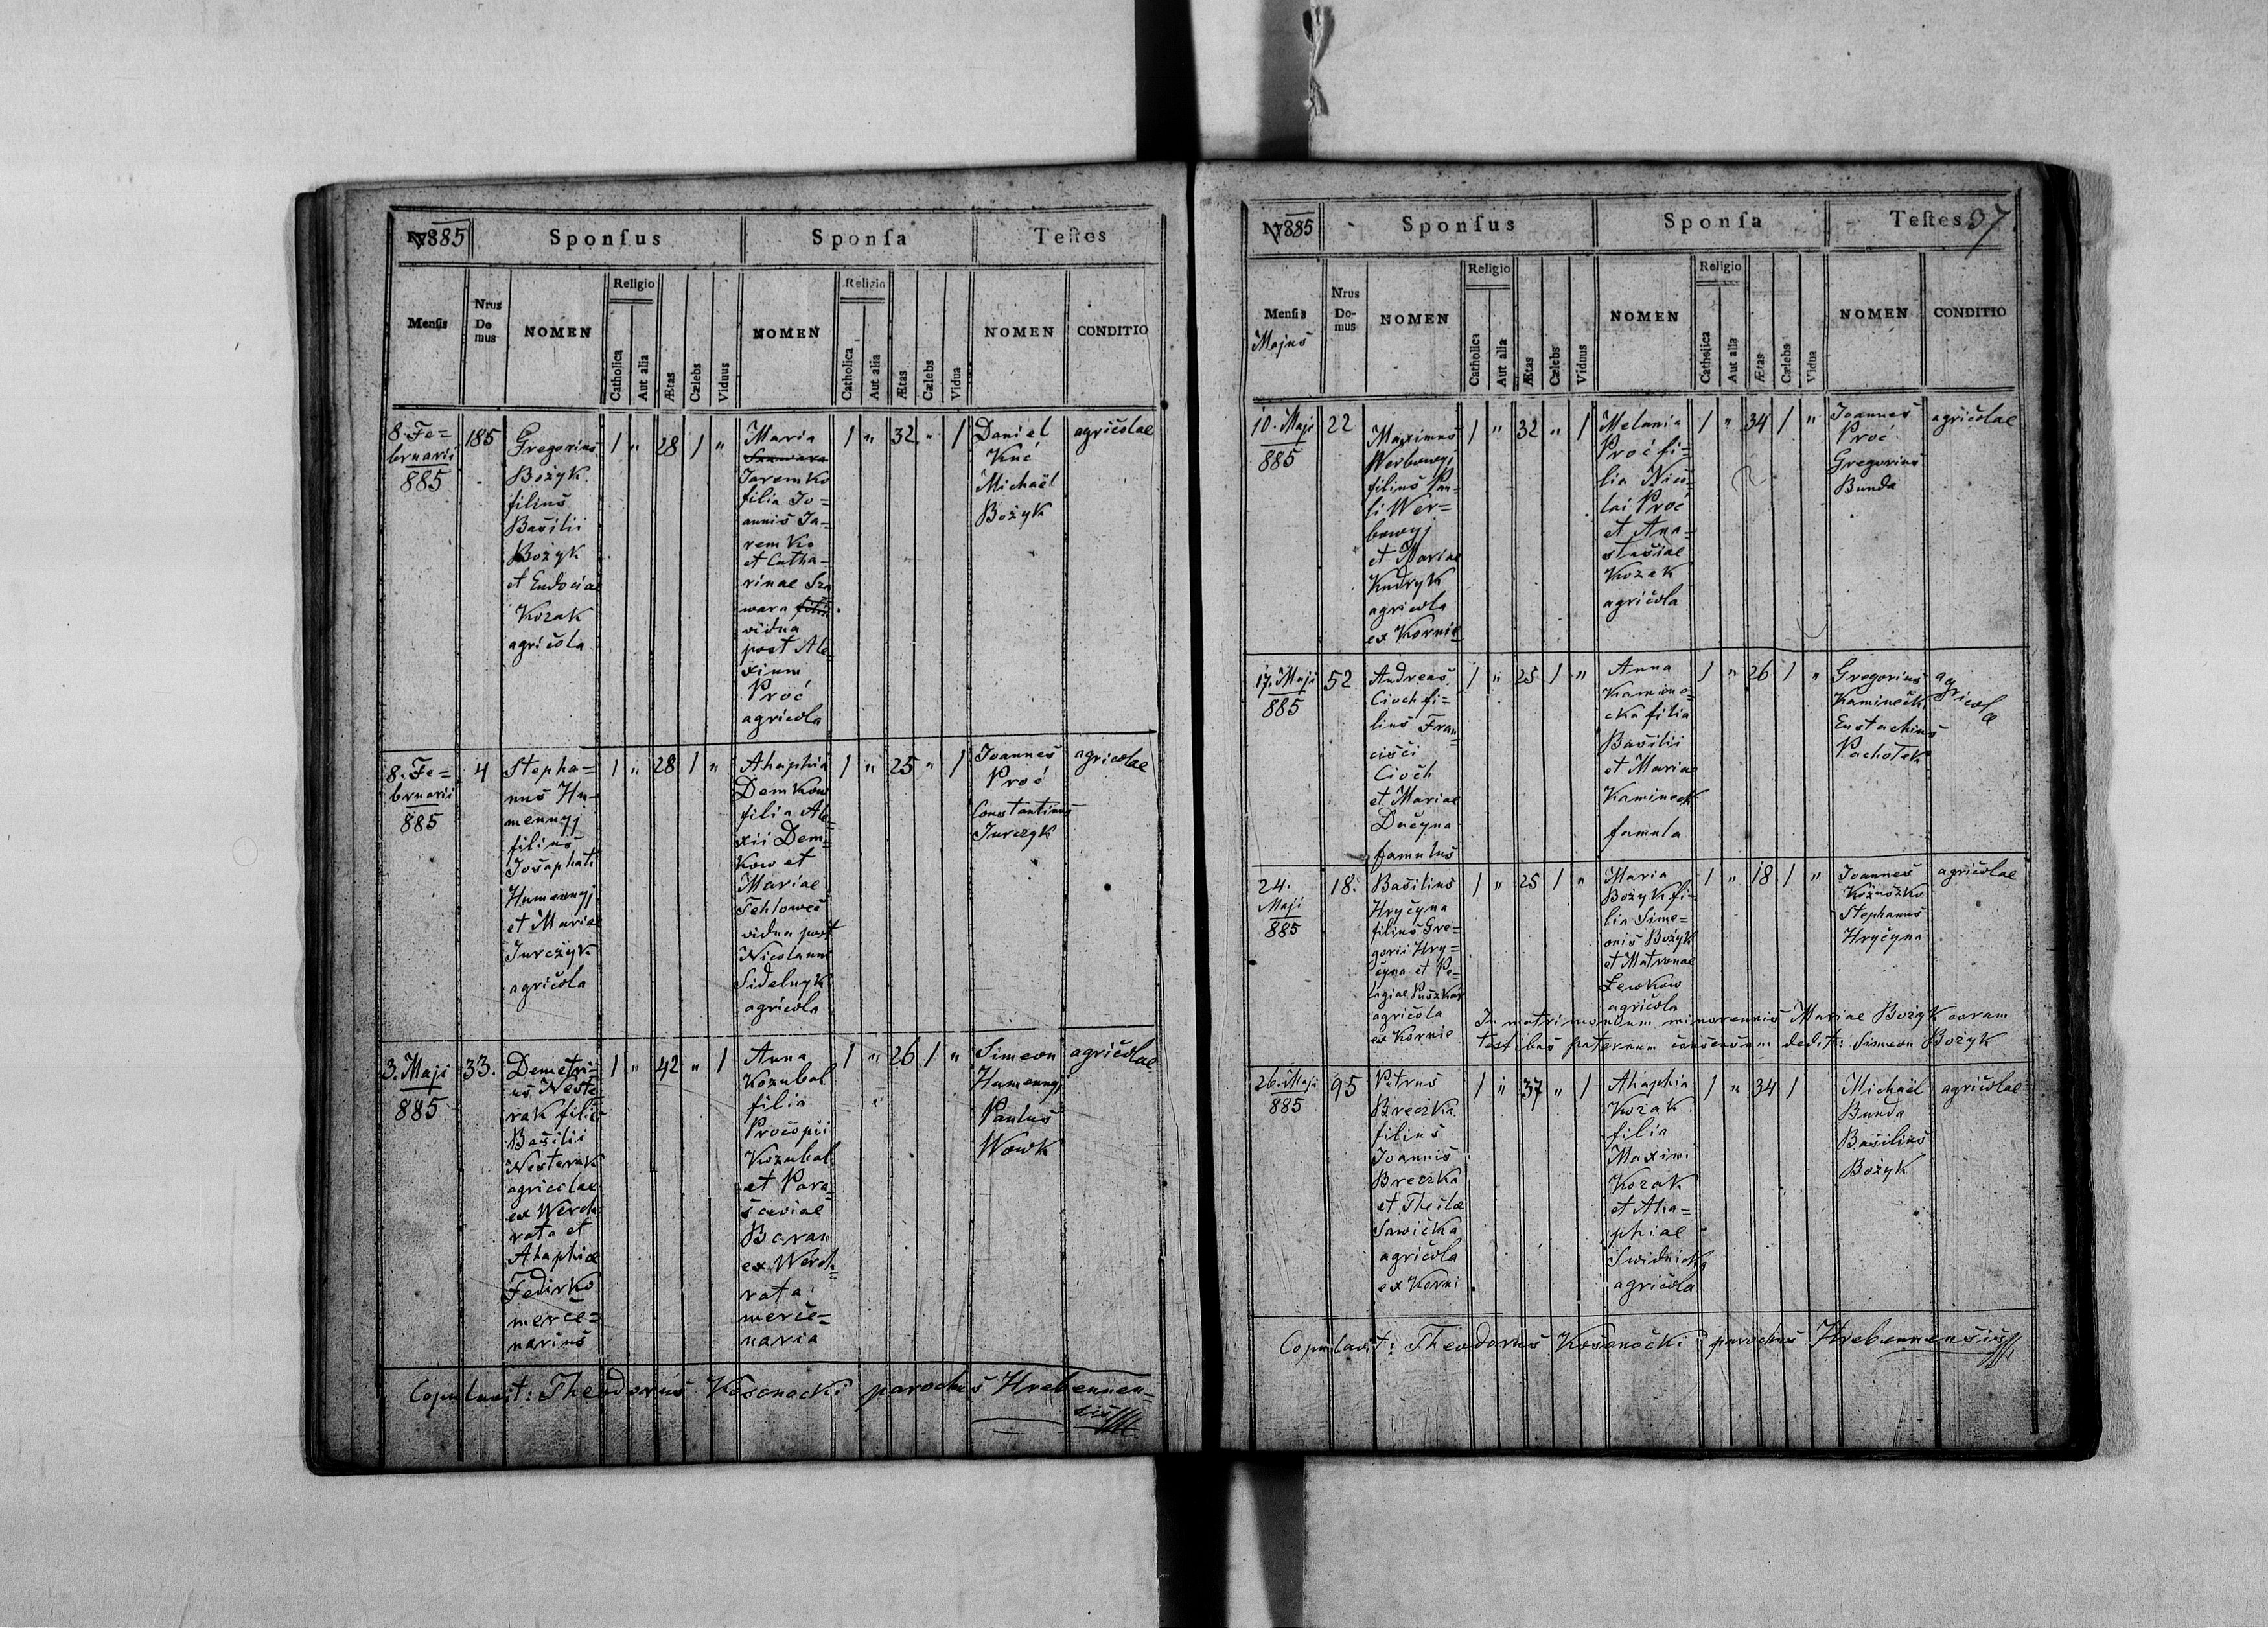 1885 Sponſus Sponſa Teſtes
Menſis Nrus Do mus NOMEN Religio Catholica Aut alia Ætas Cælebs Viduus NOMEN Religio Catholica Aut alia Ætas Cælebs Vidua NOMEN CONDITIO
8. Fe=
bruarii
885
185
Gregorius
Bożyk
filius
Basilii
Bożyk
et Eudociae
Kozak
agricola
1 " 28 1 "
Maria
Jaremko
filia Jo=
annis Ja=
remko
et Catha=
rinae Sza
wara
vidua
post Ale=
xium
Proć
agricola
1 " 32 " 1
Daniel
Kuć
Michaël
Bożyk
agricolae
8. Fe=
bruarii
885
4
Stepha=
nus Hu=
mennyj
filius
Josaphati
Humennyj
et Mariae
Jurczyk
agricola
1 " 28 1 "
Ahaphia
Demkow
filia Ale=
xii Dem=
kow et
Mariae
vidua post
Nicolaum
Sidelnyk
agricola
1 " 25 " 1
Joannes
Proć
Constantinus
Jurczyk
agricolae
3. Maji
885
33.
Demetri=
us Neste
rak filius
Basilii
Nesterak
agricolae
ex Werch
rata et
Ahaphiae
Fedirko
merce=
narius
1 " 42 " 1
Anna
Kozubal
filia
Procopii
Kozubal
et Para
sceviae
Baran
ex Werch=
rata
merce=
naria
1 " 26 1 "
Simeon
Humennyj
Paulus
Wowk
agricolae
Copulavit: Theodorus Kosonocki parochus Hrebennen=
sis
1885 Sponſus Sponſa Teſtes 37
Menſis Nrus Do- mus NOMEN Religio Catholica Aut alia Ætas Cælebs Viduus NOMEN Religio Catholica Aut alia Ætas Cælebs Vidua NOMEN CONDITIO
Majus
10. Maji
885
22
Maximus
Werbowyj
filius Pau=
li Wer=
bowyj
et Mariae
Kudryk
agricola
ex Kornie
1 " 32 " 1
Melania
Proć fi=
lia Nico=
lai Proć
et Ana=
stasiae
Kozak
agricola
1 " 34 1 "
Joannes
Proć
Gregorius
Bunda
agricolae
17. Maji
885
52
Andreas
Cioch fi=
lius Fran=
cisci
Cioch
et Mariae
Ducyna
famulus
1 " 25 1 "
Anna
Kamine=
cka filia
Basilii
et Mariae
Kamineck
famula
1 " 26 1 "
Gregorius
Kaminecki
Eustachius
Pacholak
agricolae
24.
Maji
885
18.
Basilius
Hryčyna
filius Gre=
gorii Hry=
čyna et Pe=
lagiae Puszkar
agricola
ex Kornie
1 " 25 1 "
Maria
Bożyk fi=
lia Sime=
onis Bożyk
et Matronae
Lewkow
agricola
1 " 18 1 "
Joannes
Kożuszko
Stephanus
Hryčyna
agricolae
In matrimonium minorennis Mariae Bożyk coram
testibus paternum consensum dedit: Simeon Bożyk
26. Maji
885
95
Petrus
Breczka
filius
Joannis
Breczka
et Theclae
Sawicka
agricola
ex Korni
1 " 37 " 1
Ahaphia
Kozak
filia
Maximi
Kozak
et Aha=
phiae
Swidnicka
agricola
1 " 34 1
Michaël
Bunda
Basilius
Bożyk
agricolae
Copulavit: Theodorus Kosonocki parochus Hrebennensis